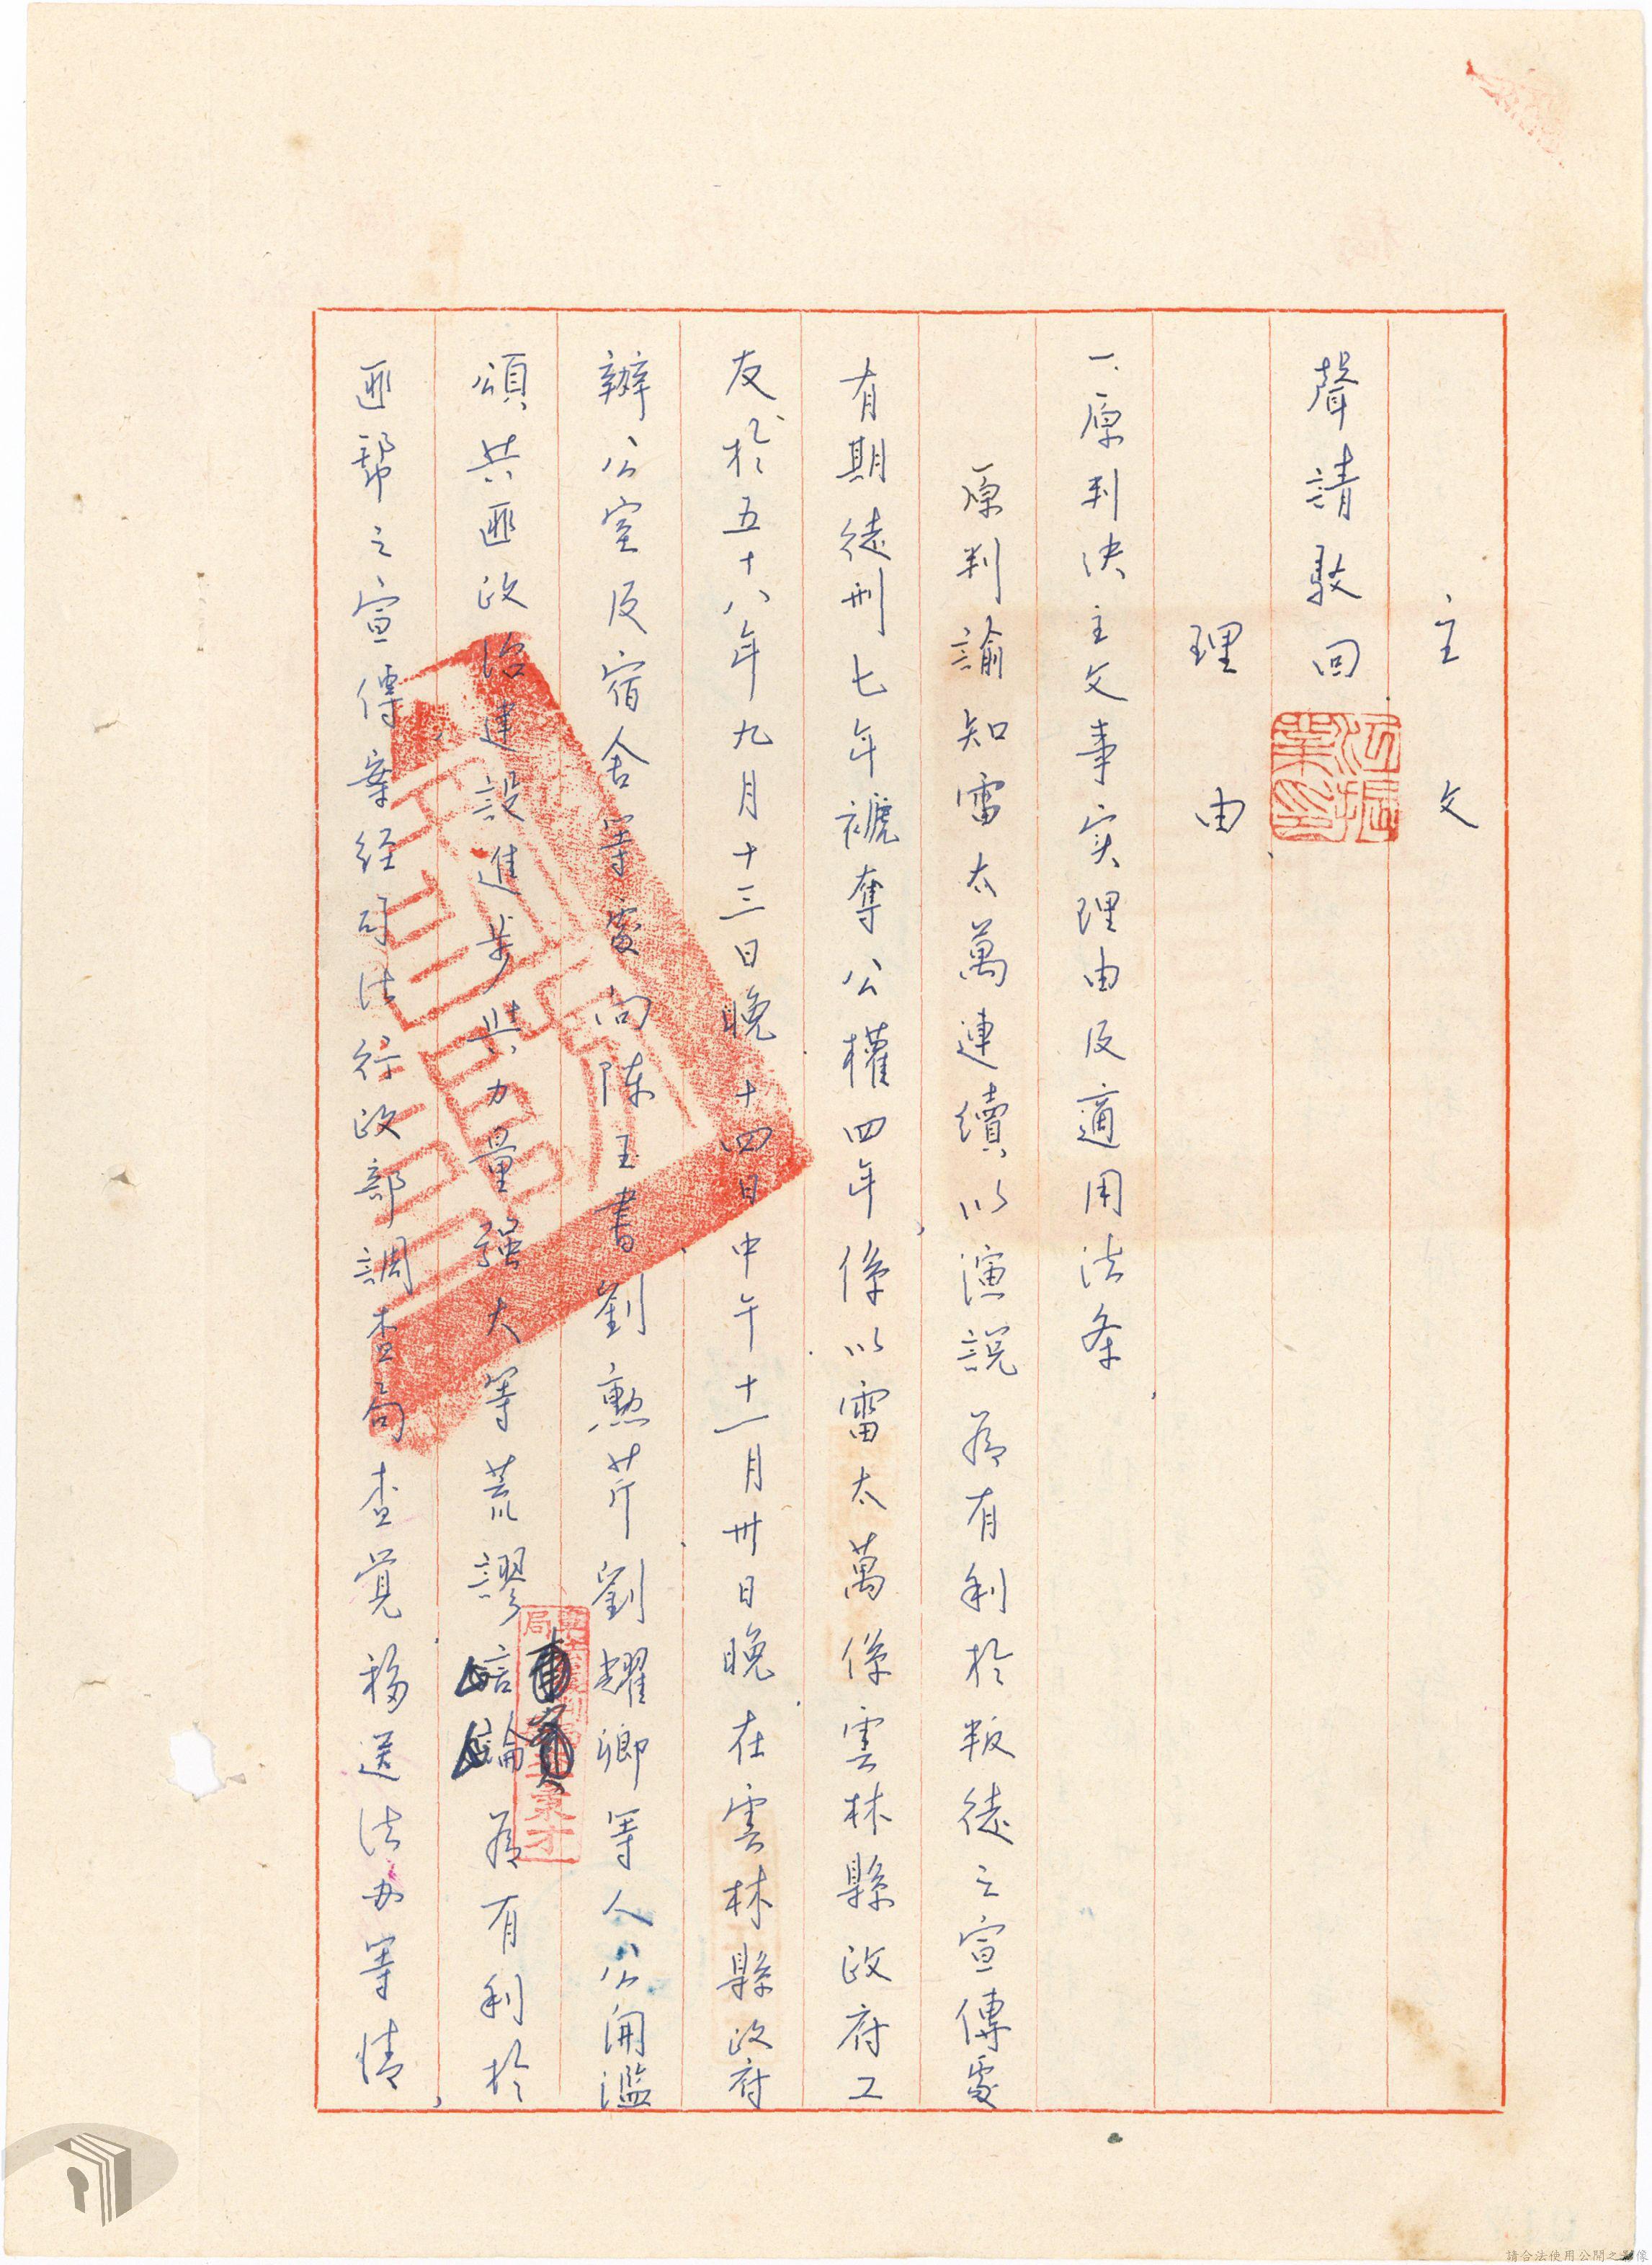 主文
聲請駁回
理由
一、原判決主文事实理由及適用法条
原判諭知雷太萬連續以演説為有利於叛徒之宣傳處
有期徒刑七年褫奪公權四年係以雷太萬係雲林縣政府工
友於五十八年九月十三日晚十四日中午十一月卅日晚在雲林縣政府
辦公室及宿舍等處向陳玉書劉勲芹劉耀卿等人公開濫
頌共匪政治建設進步與力量強大等荒謬言論為有利於
匪幫之宣傳案经司法行政部調查局查覚移送法办等情
請合法使用公開之影像